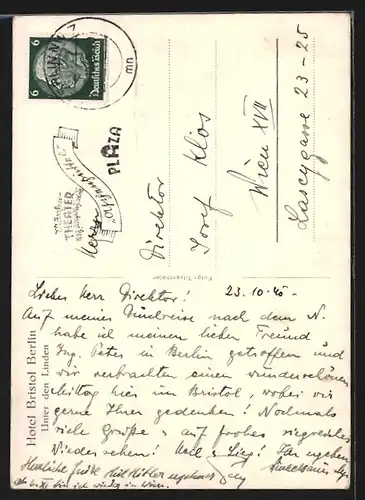 6
6
Deutsches Reich
THEATER
PLAZA
Herrn
Direktor
Josef Klos
Wien XVII
Lascygasse 23-25
Hotel Bristol Berlin
Unter den Linden
23.10.40.
Lieber Herr Direktor!
Auf meiner Durchreise nach dem N.
habe ich meinen lieben Freund
Ing. Peter in Berlin getroffen und
wir verbrachten einen wunderschönen
Mittag hier im Bristol, wobei wir
gerne Ihrer gedenken! Nochmals
viele Grüße u. auf frohes siegreiches
Wiedersehen! Heil u. Sieg! Ihr ergebener
Herzliche Grüße Heil Hitler
bin ich wieder in Wien.